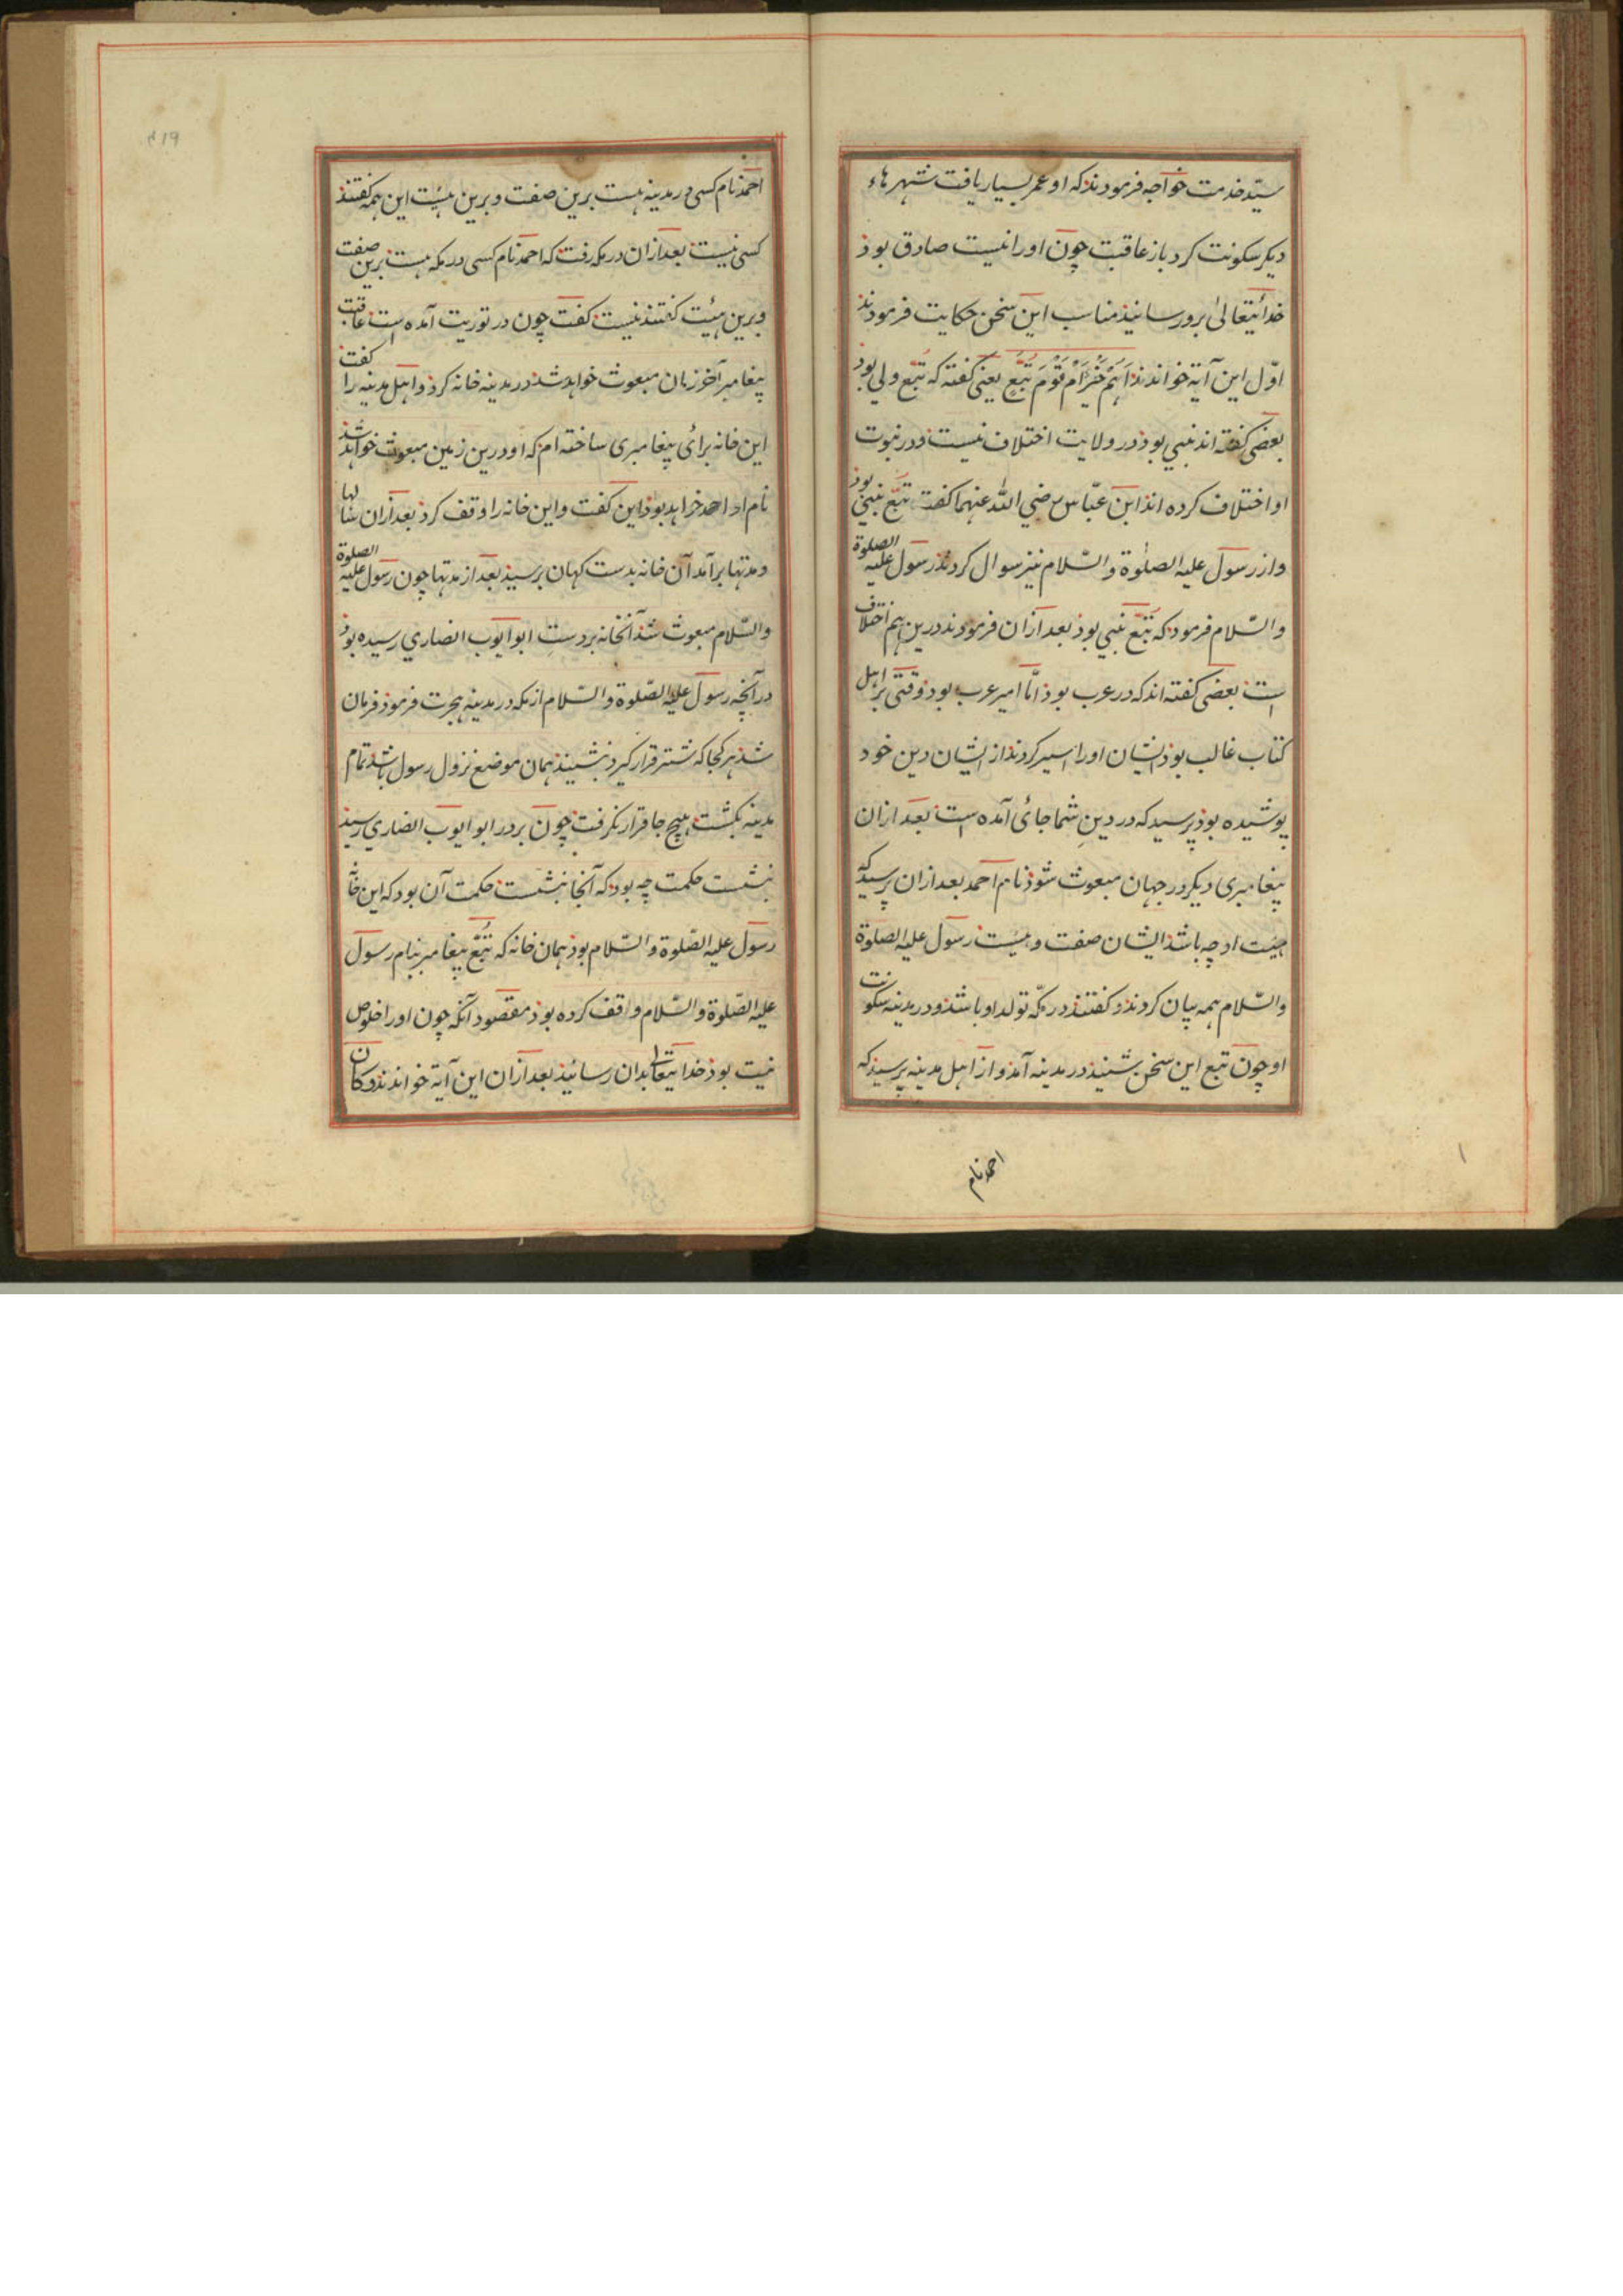 سیّد خدمت خواجه فرمودند که او عمر بسیار یافت شهرهاء
دیکر سکونت کرد باز عاقبت چون او را نیت صادق بوذ
خدائیتعالیٰ برو رسانیذ مناسب این سخن حکایت فرمودند
اوّل این آیة خواندند اَهُمْ خَیْرٌ اَمْ قَوْمُ تُبَّعٍ یعنی کفته که تُبّع ولی بوذ
بعضی کفته اند نبی بوذ در ولایت اختلاف نیست و در نبوت
او اختلاف کرده اند ابن عبّاس رضي الله عنهما کفت تُبّع نبي بوذ
و از رسول علیه الصلوٰة والسّلام نیز سوال کردند رسول علیه الصلوة
والسّلام فرمود که تُبّع نبي بوذ بعد ازان فرمودند درین هم اختلاف
است بعضی کفته اند که در عرب بوذ امّا امیر عرب بود وقتی بر اهل
کتاب غالب بوذ ایشان او را اسیر کردند از ایشان دین خود
پوشیده بوذ پرسید که در دینِ شما جائی آمده است بعد ازان
پیغامبری دیکر در جهان مبعوث شوذ نام احمد بعد ازان پرسید که
هیئت او چه باشذ ایشان صفت و هیئت رسول علیه الصلوة
والسّلام همه بیان کردند و کفتند در مکّه تولد او باشذ و در مدینه سکونت
او چون تبع این سخن بشنیذ در مدینه آمذ و از اهل مدینه پرسیذ که
احمد نام
احمذ نام کسی در مدینه هست برین صفت و برین هیئت این همه کفتند
کسی نیست بعد ازان در مکه رفت که احمد نام کسی در مکه هست برین صفت
و برین هیئت کفتند نیست کفت چون در توریت آمده است عاقبت
پیغامبر آخر زمان مبعوث خواهد شد در مدینه خانه کرد و اهل مدینه را کفت
این خانه برائی پیغامبری ساخته ام که او درین زمین مبعوث خواهد شذ
نام او احمد خواهد بوذ این کفت و این خانه را وقف کرد بعد ازان سالها
و مدتها برآمد آن خانه بدست کهان برسیذ بعد از مدتها چون رسول علیه الصلوة
والسّلام مبعوث شذ آنخانه بر دستِ ابو ایوب انصاري رسیده بوذ
درآنچه رسول علیه الصّلوة والسّلام از مکه در مدینه هجرت فرموذ فرمان
شذ هر کجا که شتر قرار کیرد بنشیند همان موضع نزول رسول باشذ تمام
مدینه بکشت هیچ جا قرار نکرفت چون بر در ابو ایوب انصاري رسیذ
بنشست حکمت چه بود که آنجا بنشست حکمت آن بود که این خانه
رسول علیه الصّلوة والسّلام بوذ همان خانه که تُبّع پیغامبر بنام رسول
علیه الصّلوة والسّلام واقف کرده بوذ مقصود آنکه چون او را خلوص
نیت بوذ خدائیتعالی بدان رسانیذ بعد ازان این آیة خواندند و کان
۴۱۹
۱